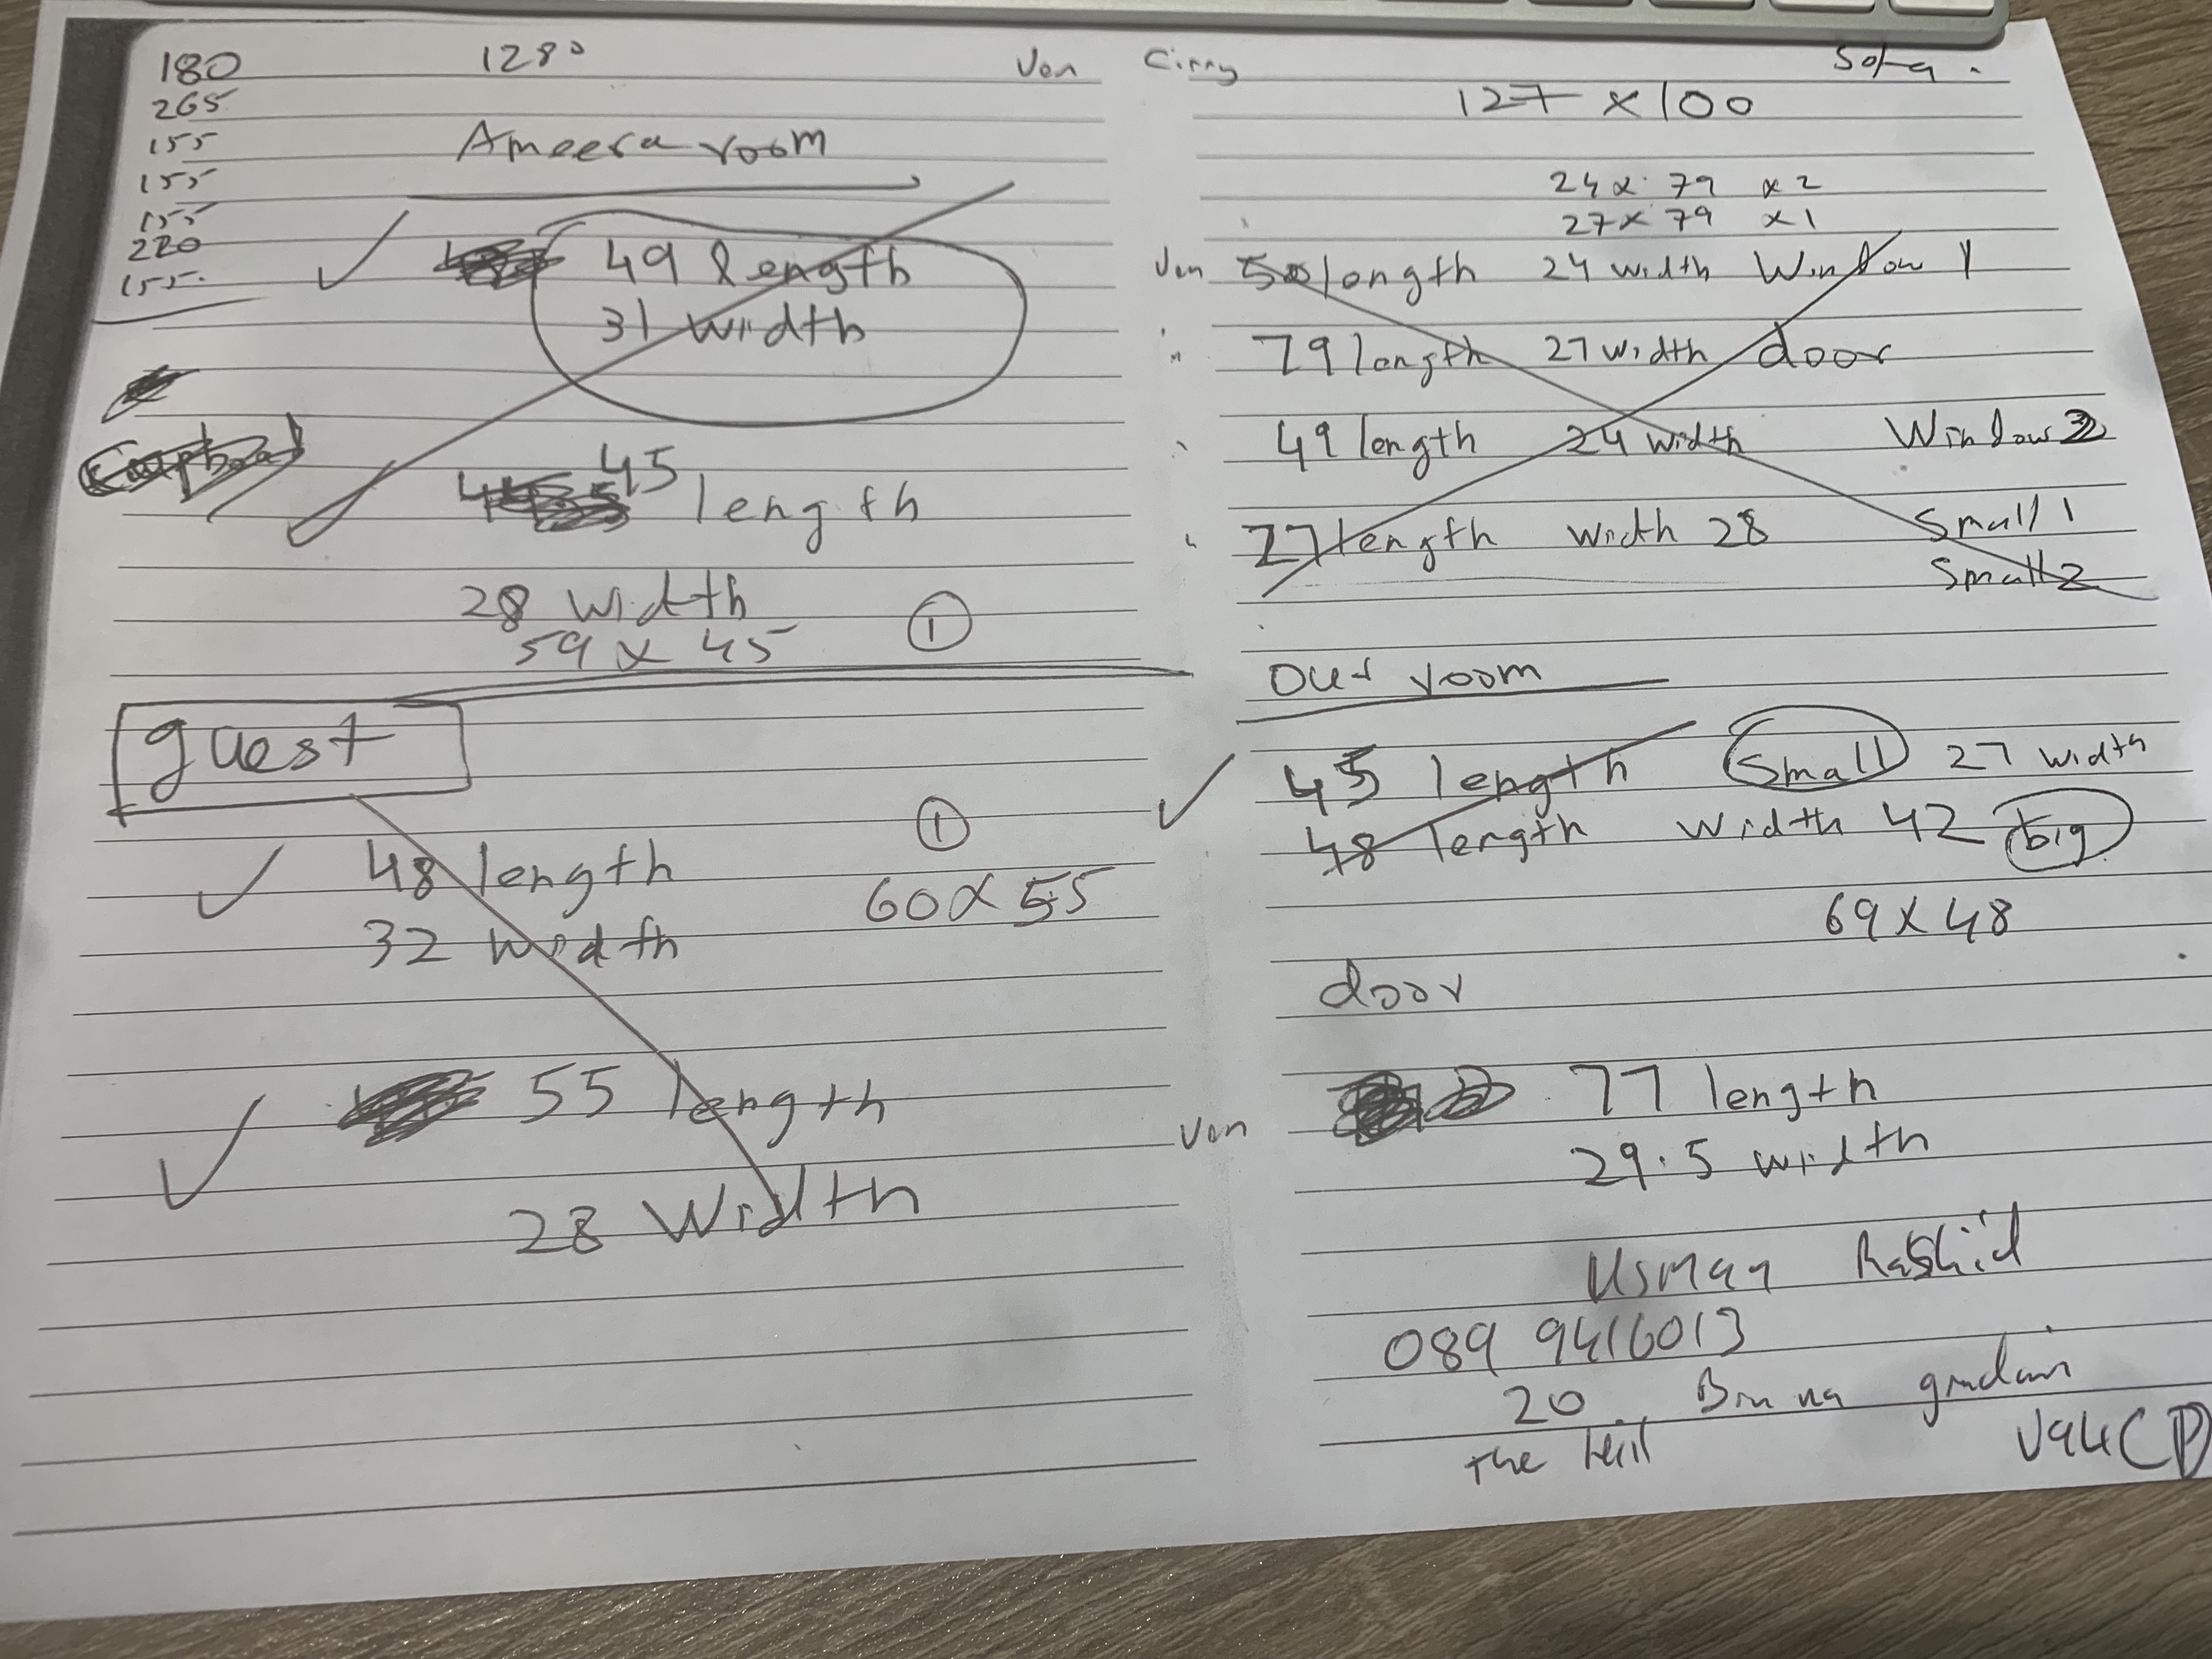 180
1280
265
155
155
155
220
155
Ameera room
49 length
31 width
45 length
28 width
59 x 45
1
guest
48 length
32 width
1
60 x 55
55 length
28 width
Ven
Sofa.
127 x 100
24 x 79 x 2
27 x 79 x 1
Ven 50 length 24 width Window 1
" 79 length 27 width door
49 length 24 width Window 2
77 length width 28 Small 1
Small 2
our room
45 length Small 27 width
48 length width 42 big
69 x 48
door
Ven 77 length
29.5 width
Usman Rashid
089 9416013
20
The Hill
V94C